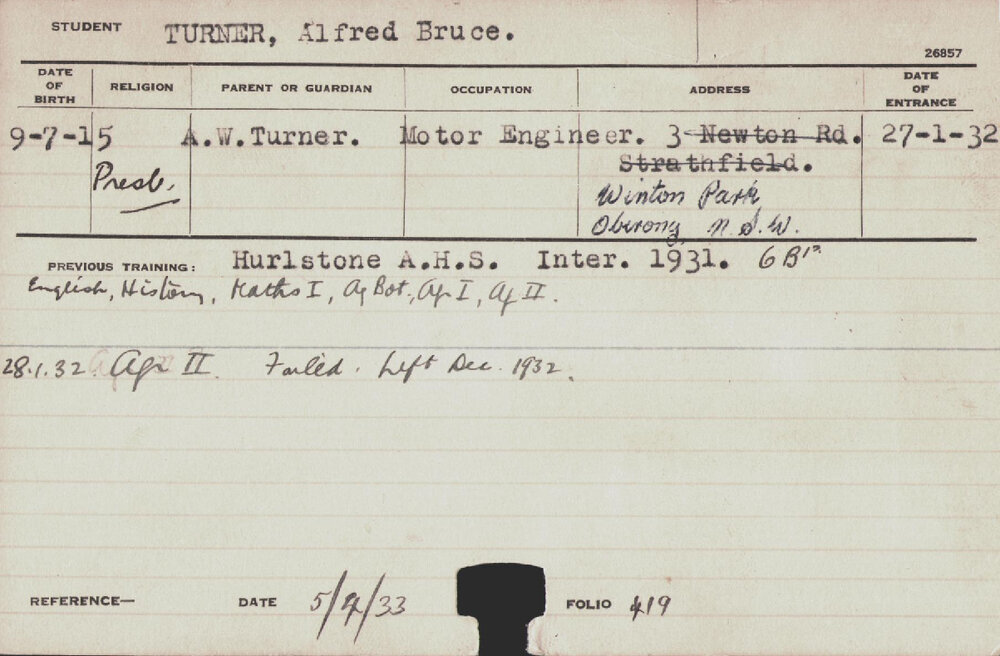 STUDENT TURNER, Alfred Bruce.
26857
DATE OF BIRTH RELIGION PARENT OR GUARDIAN OCCUPATION ADDRESS DATE OF ENTRANCE
9-7-15 A.W.Turner. Motor Engineer. 3 Newton Rd. 27-1-32
Strathfield.
Presb.
Winton Park
Oberong N.S.W.
PREVIOUS TRAINING: Hurlstone A.H.S. Inter. 1931. 6 B's
English, History, Maths I, Ag Bot., Ag I, Ag II.
28.1.32 Agr II Failed. Left Dec. 1932.
REFERENCE— DATE 5/4/33 FOLIO 419